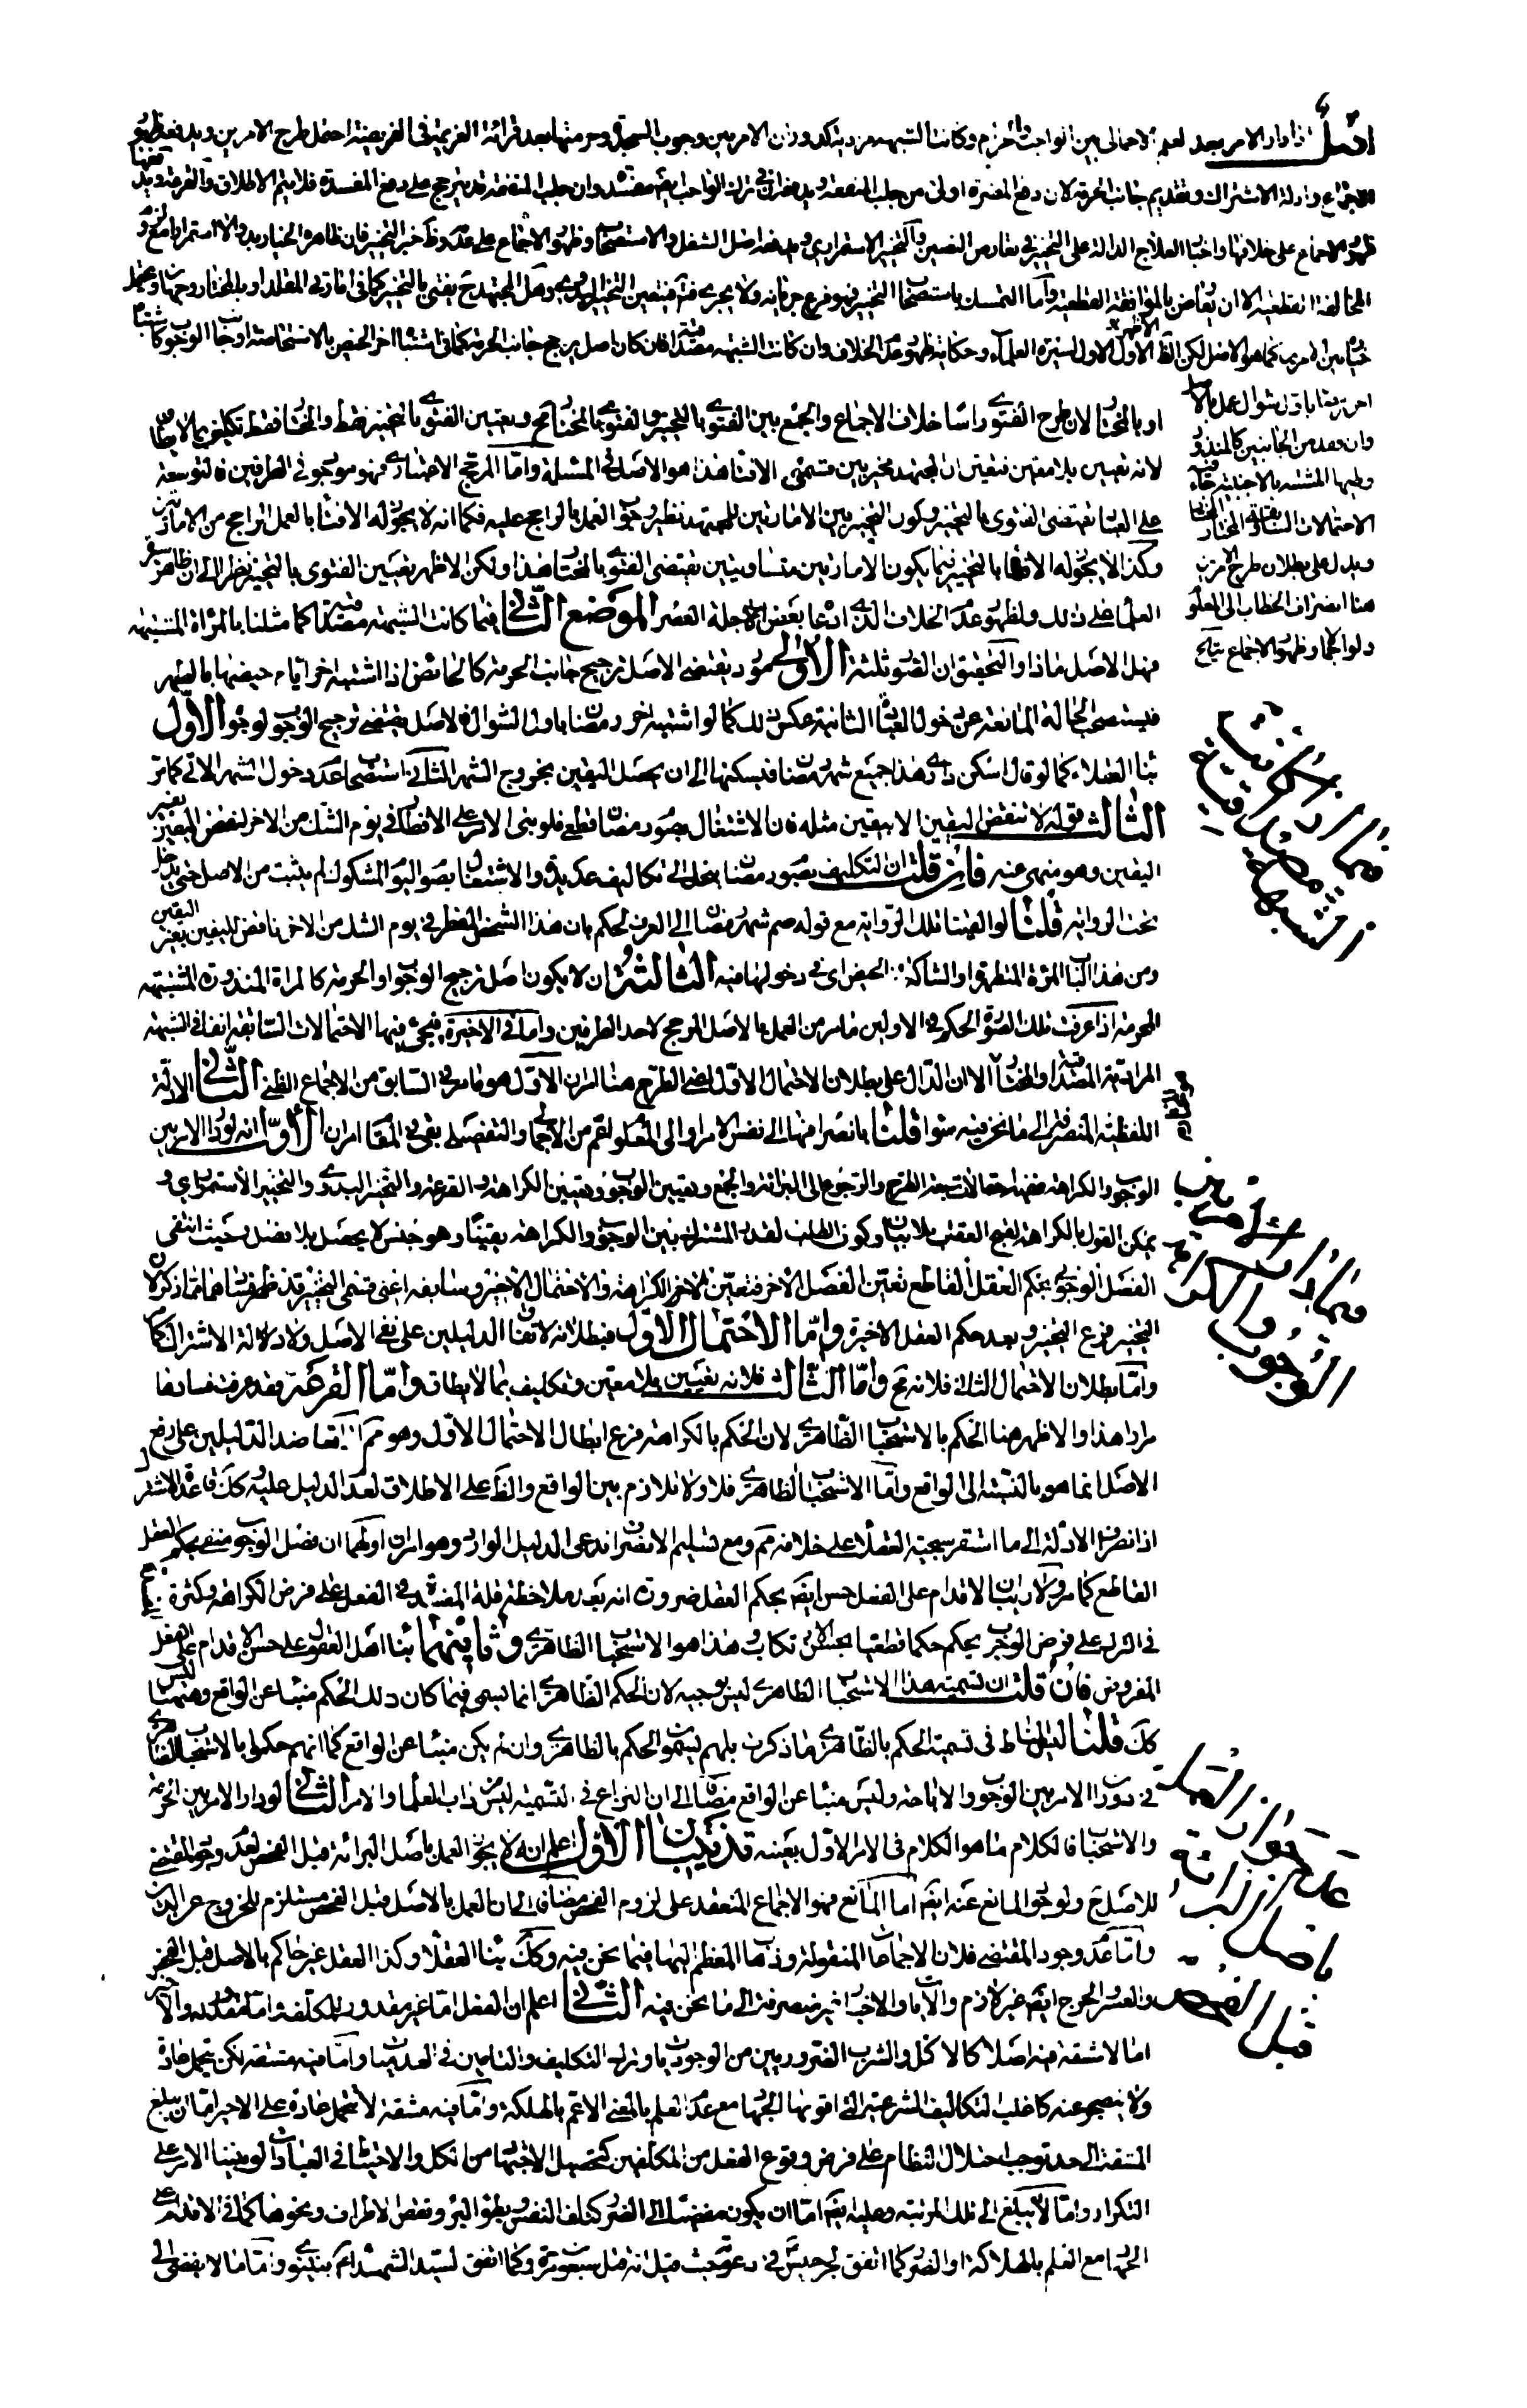 اصل اذا دار الامر بعد العلم الاجمالى بين الواجب والحرام وكانت الشبهة مرددة كدوران الامر بين وجوب السجدة وحرمتها بعد قرائة العزيمة فى الفريضة احتمل طرح الامرين ويدفعه ظهور
الاجماع وادلة الاشتراك وتقديم جانب الحرمة لان دفع المضرة اولى من جلب المنفعة ويدفعه ان فى ترك الواجب ايضا مفسدة وان جلب المنفعة قد يترجح على دفع المفسدة فلا يتم الاطلاق والقرعة ويدفعها
ظهور الاجماع على خلافها واخبار العلاج الدالة على التخيير فى تعارض النصين والتخيير الاستمرارى ويدفعه اصل الشغل والاستصحاب وظهور الاجماع على عدمه
المخالفة القطعية الا ان يعارض بالموافقة القطعية واما التمسك باستصحاب التخيير فهو فرع جريانه ولا يجرى فتعين التخيير البدوى وهل المجتهد ح يفتى بالتخيير كما فى امارتى المقلد او بالمختار وجهان
بين الامرين كما هو الاصل لكن الظ الاول الاول لسيرة العلماء وحكاية ظهور عدم الخلاف وان كانت الشبهة مصداقية فان كان اصل يرجح جانب الحرمة كما فى اشتباه اخر الحيض بالاستحاضة او جانب الوجوب كاشتباه
اخر رمضان باول شوال عمل بالاصل
وان فقد من الجانبين كالمنذور
وطيها المشتبه بالاجنبية جاء فيه
الاحتمالات السابقة والمختار المختار
ويدل على بطلان طرح الامرين
هنا انصراف الخطاب الى المعلوم
ولو اجمالا وظهور الاجماع
او بالمختار لان طرح الفتوى راسا خلاف الاجماع والجمع بين الفتوى بالتخيير والفتوى بالمختار مح وتعيين الفتوى بالتخيير فقط والمختار فقط تكليف بما لا يطاق
لانه تعيين بلا معين فتعين ان المجتهد مخير بين قسمى الافتاء هذا هو الاصل فى المسئلة واما المرجح الاجتهادى فهو موجود فى الطرفين فالتوسعة
على العباد تقتضى الفتوى بالتخيير وكون التخيير بين الامارتين للمجتهد نظير وجوب العمل بالراجح عليه فكما انه لا يجوز له الافتاء بالعمل بالراجح من الامارتين
وكذا لا يجوز له الافتاء بالتخيير فيما يكون الامارتين متساويتين تقتضى الفتوى بالمختار هذا ولكن الاظهر تعيين الفتوى بالتخيير نظرا الى ان ظاهر سيرة
العلماء على ذلك ولظهور عدم الخلاف الذى ادعاه بعض اجلة العصر الموضع الثانى فيما كانت الشبهة مصداقية كما مثلنا بالمراة المشتبهة
فهل الاصل ماذا والتحقيق ان الصور ثلثة الاولى صورة يقتضى الاصل ترجيح جانب الحرمة كالحائض اذا اشتبه اخر ايام حيضها بالطهر
فيستصحب الحالة المانعة عن دخول العبادة الثانية عكس ذلك كما لو اشتبه اخر رمضان باول الشوال فالاصل يقتضى ترجيح الوجوب لوجوه الاول
بناء العقلاء كما لو قال اسكن دارى هذا جميع شهر رمضان فيسكنها الى ان يحصل اليقين بخروج الشهر الثانى استصحاب عدم دخول الشهر الاتى كما مر
الثالث قوله لا تنقض اليقين الا بيقين مثله فان الاشتغال بصوم رمضان قطعى فلو بنى الامر على الافطار فى يوم الشك من الاخر لنقض اليقين بغير
اليقين وهو منهى عنه فان قلت ان التكليف بصوم رمضان ينحل الى تكاليف عديدة والاشتغال بصوم اليوم المشكوك لم يثبت من الاصل حتى يدخل
تحت الرواية قلنا لو القينا تلك الرواية مع قوله صم شهر رمضان الى العرف لحكم بان هذا الشخص المفطر فى يوم الشك من الاخر ناقض لليقين بغير اليقين
ومن هذا الباب المرئة المتطهرة او الشاكة فى الحيض اى فى دخولها فيه الثالثة ان لا يكون اصل يرجح الوجوب او الحرمة كالمراة المنذورة المشتبهة
المحرمة اذا عرفت تلك الصورة الحكم فى الاولين ما مر من العمل بالاصل المرجح لاحد الطرفين واما فى الاخيرة فيجئ فيها الاحتمالات السابقة انفا فى الشبهة
المرادية المصداقية والمختار المختار الا ان الدال على بطلان الاحتمال الاول اعنى الطرح هنا امران الاول هو ما مر فى السابق من الاجماع الظنى الثانى الادلة
اللفظية المنصرفة الى ما نحن فيه سواء قلنا بانصرافها الى نفس الامر او الى المعلوم اعم من الاجمالى والتفصيلى بقى فى المقام امران الاول انه لو دار الامر بين
الوجوب والكراهة ففيه احتمالات سبعة الطرح والرجوع الى البرائة والجمع وتعيين الوجوب وتعيين الكراهة والقرعة والتخيير البدوى والتخيير الاستمرارى و
يمكن القول بالكراهة لقبح العقاب بلا بيان وكون الطلب القدر المشترك بين الوجوب والكراهة يقينيا وهو جنس لا يحصل بلا فصل بحيث انتفى
الفصل الوجوبى بحكم العقل القاطع تعين الفصل الاخر فتعين الامر الكراهة والاحتمال الاخير وسابقه اعنى قسمى التخيير قد ظهر فسادهما مما ذكر لان
التخيير فرع التحير وبعد حكم العقل لا حيرة واما الاحتمال الاول فبطلانه لاتفاق الدليلين على نفى الاصل ولادلة الاشتراك
واما بطلان الاحتمال الثانى فلانه مح واما الثالث فلانه تعيين بلا معين وتكليف بما لا يطاق واما القرعة فقد عرفت فسادها
مرارا هذا والاظهر هنا الحكم بالاستحباب الظاهرى لان الحكم بالكراهة فرع ابطال الاحتمال الاول وهو مم اذ تعاضد الدليلين على رفع
الاصل انما هو بالنسبة الى الواقع واما الاستحباب الظاهرى فلا ولا تلازم بين الواقع والظ على الاطلاق لعدم الدليل عليه كك قاعدة الاشتراك
اذ انصراف الادلة الى ما استقر سجية العقلاء على خلافه مم ومع تسليم الانصراف ندعى الدليل الوارد وهو امران اولهما ان فصل الوجوب منفى بحكم العقل
القاطع كما مر ولا ريب ان الاقدام على الفعل حسن ايضا بحكم العقل ضرورة انه بعد ملاحظة قلة المفسدة فى الفعل على فرض الكراهة وكثرة
فى الترك على فرض الوجوب يحكم حكما قطعيا بحسن الارتكاب وهذا هو الاستحباب الظاهرى وثانيهما بناء اهل العقول على حسن الاقدام على الفعل
المفروض فان قلت ان تسمية هذا الاستحباب الظاهرى ليس بوجيه لان الحكم الظاهرى انما يسمى فيما كان ذلك الحكم منبئا عن الواقع وهنا ليس
كك قلنا ليس المناط فى تسمية الحكم بالظاهرى ما ذكرت بل هم يسمون الحكم بالظاهرى وان لم يكن منبئا عن الواقع كما انهم حكموا بالاستحباب الظاهرى
فى دوران الامر بين الوجوب والاباحة وليس منبئا عن الواقع مضافا الى ان النزاع فى التسمية ليس من داب العلماء والامر الثانى لو دار الامر بين الحرمة
والاستحباب فالكلام ما هو الكلام فى الامر الاول بعينه تذنيبان الاول اعلم انه لا يجوز العمل باصل البرائة قبل الفحص لعدم وجود المقتضى
للاصل ح ولوجود المانع عنه ايضا اما المانع فهو الاجماع المنعقد على لزوم الفحص مضافا الى ان العمل بالاصل قبل الفحص مستلزم للخروج عن الدين
واما عدم وجود المقتضى فلان الاجماعات المنقولة وذهاب المعظم اليها فيما نحن فيه وكك بناء العقلاء وكذا العقل غير حاكم بالاصل قبل الفحص
والعسر والحرج ايضا غير لازم والايات والاخبار غير منصرفة الى ما نحن فيه الثانى اعلم ان الفعل اما غير مقدور للمكلف واما مقدور له والاخير
اما لا مشقة فيه اصلا كالاكل والشرب الضروريين من الوجوديات وترك التكليف والتامين فى العدميات واما فيه مشقة لكن يتحمل عادة
ولا ينصجر عنه كاغلب التكاليف الشرعية التى اقويها الجهاد مع عدم العلم بالمعنى الاعم بالهلكة واما فيه مشقة لا تتحمل عادة على الاخير اما ان يبلغ
المشقة الى حد توجب اختلال النظام على فرض وقوع الفعل من المكلفين كتحصيل الاجتهاد من الكل والاحتياط فى العبادات لو بنينا الامر على
التكرار واما لا يبلغ الى تلك المرتبة وعليه ايضا اما ان يكون مفضيا الى الضرر كتلف النفس وبطؤ البرء ونقص الاطراف ونحوها كما فى الاقدام على
الجهاد مع العلم بالهلاكة او الضرر كما اتفق لجرجيس فى دعوته حيث قيل انه قتل سبعين مرة وكما اتفق لسيد الشهداء بنينوى واما ما لا يفضى الى
فيما اذا كانت الشبهة مصداقية
فيما دار الامر بين الوجوب والكراهة
عدم جواز العمل باصل البرائة قبل الفحص